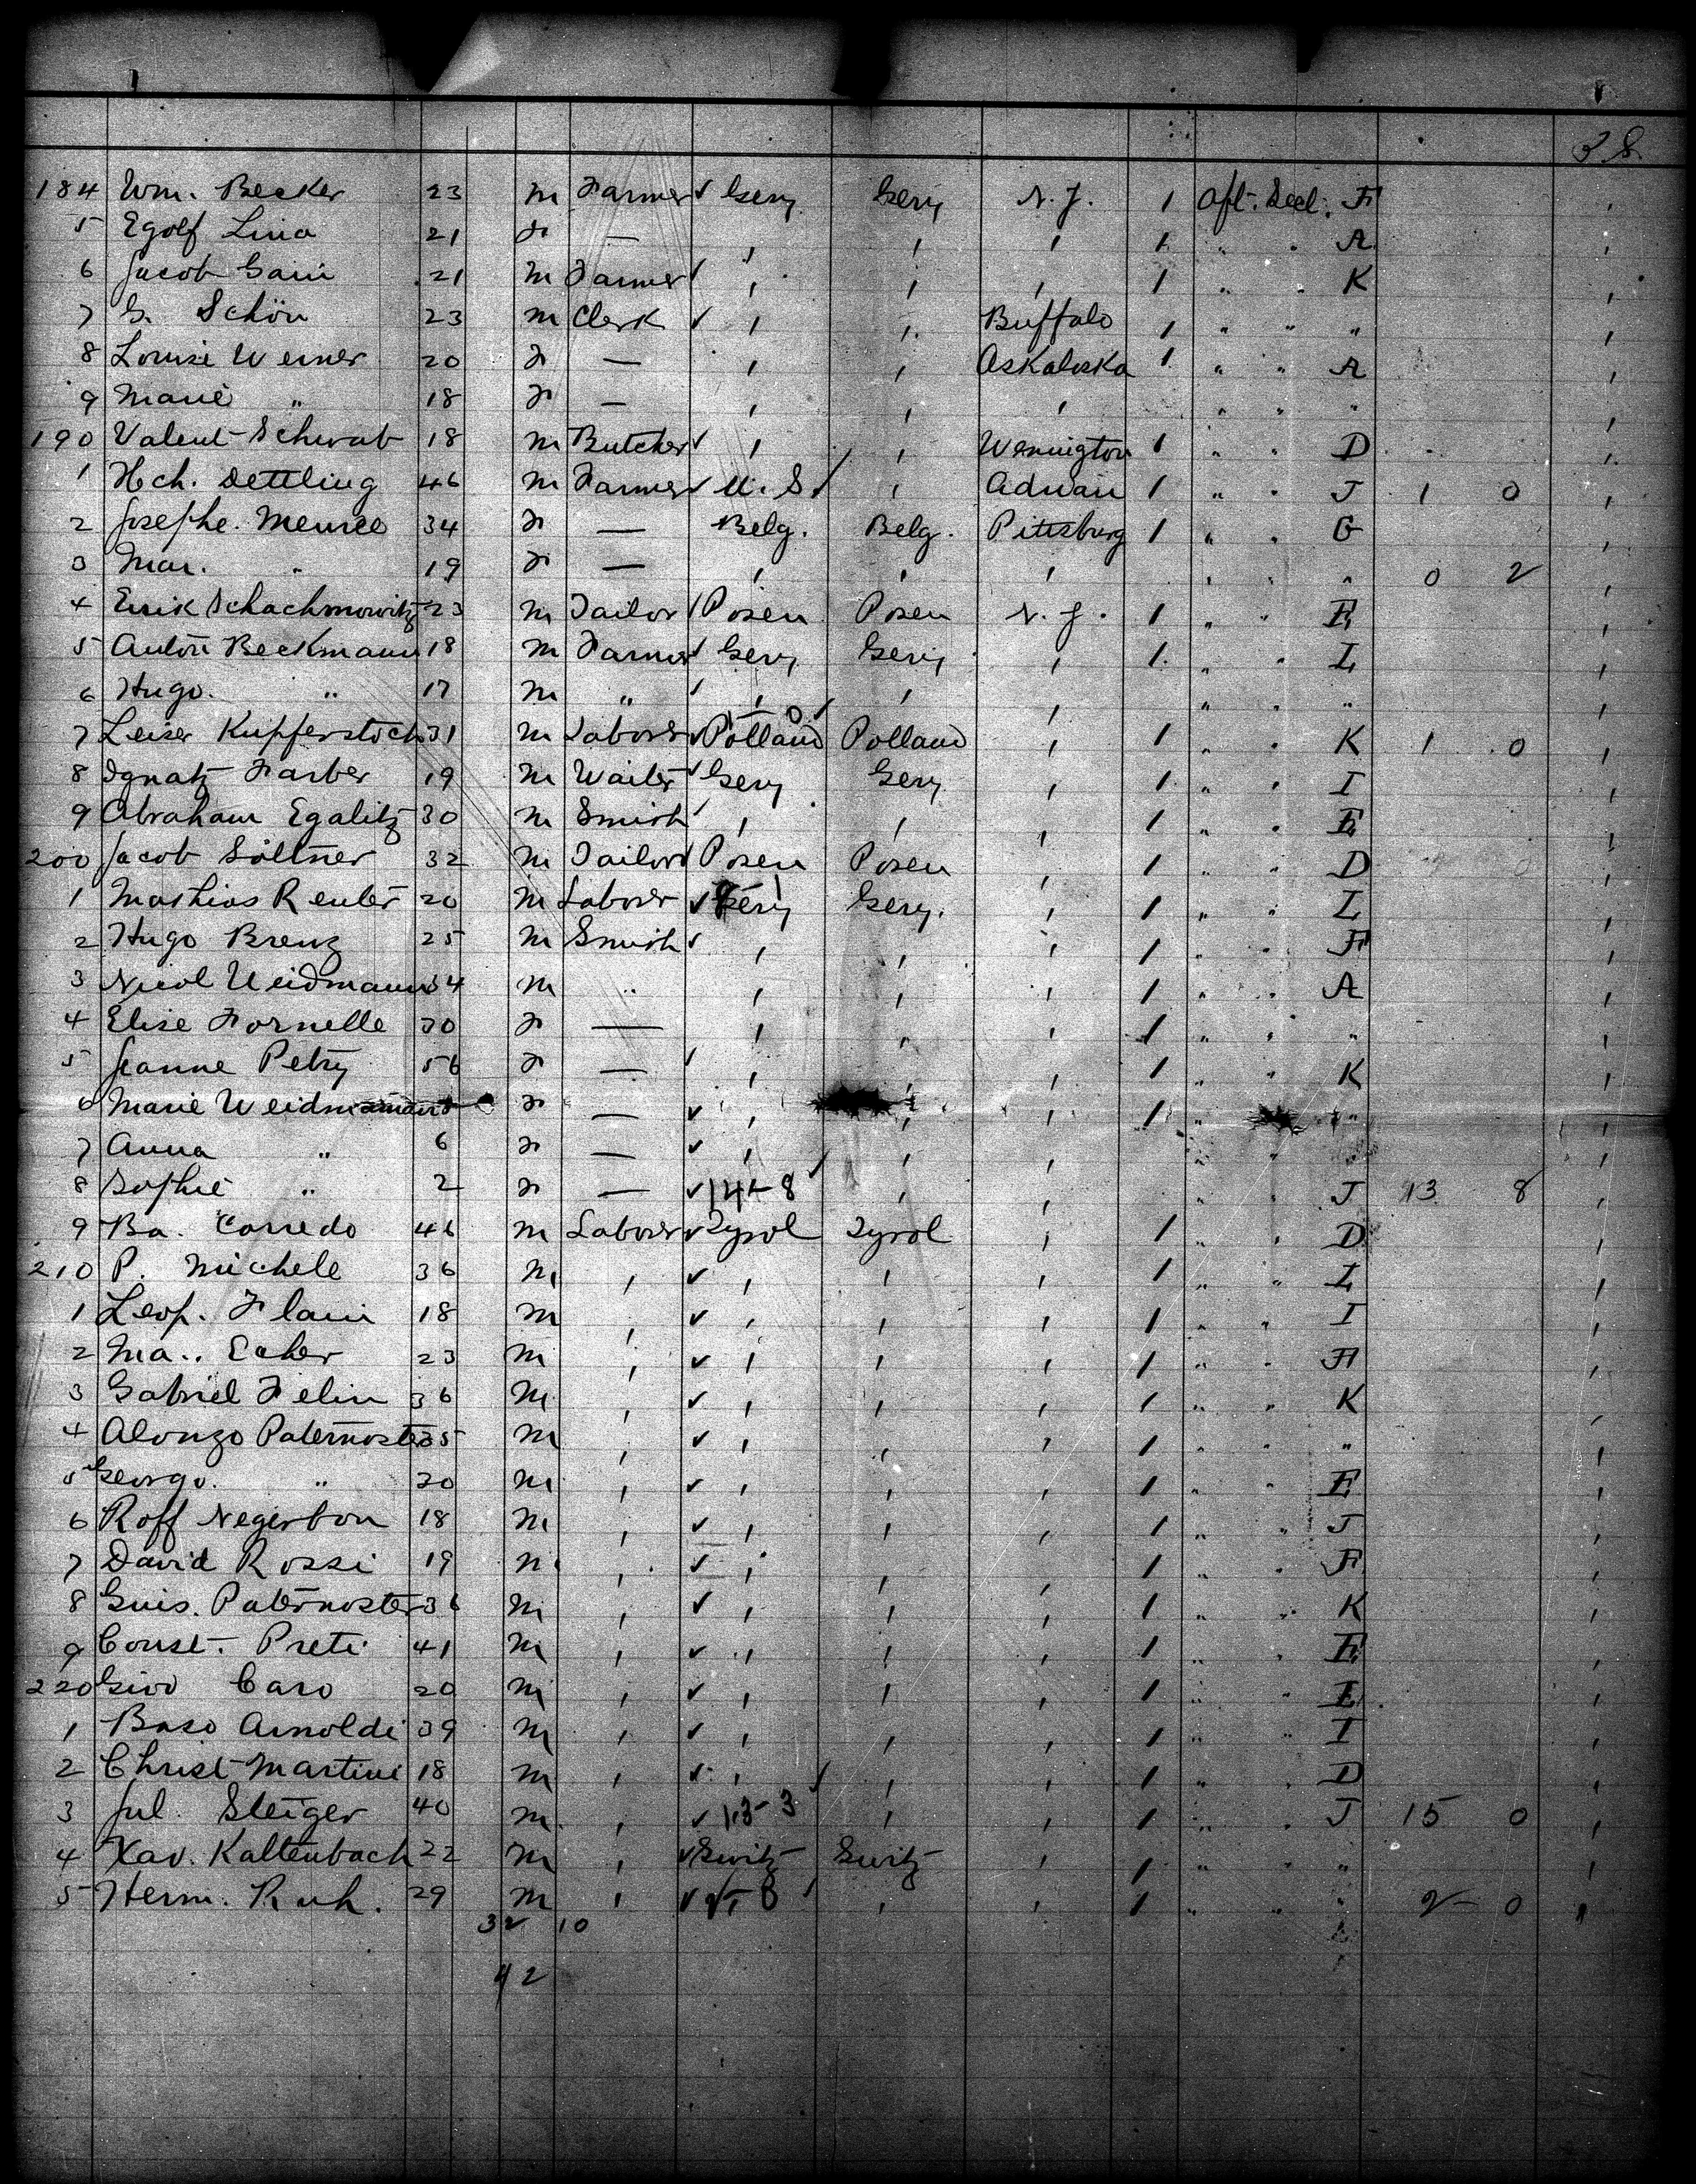 38
184 Wm. Becker 23 m Farmer ✓ Gery Gery N.Y. 1 Aft. Decl. F
5 Egolf Lina 21 F — , , , 1 " " A
6 Jacob 21 m Farmer ✓ , , , 1 " " K
7 G. Schön 23 m Clerk ✓ , , Buffalo 1 " " "
8 Louise Werner 20 F — , , Oskaloska 1 " " A
9 Marie " 18 F — , , , " " "
190 Valent Schwab 18 m Butcher ✓ , , 1 " " D
1 Hch. Dettling 46 m Farmer ✓ U.S. ✓ , Adrian 1 " " J 1 0
2 Josephe. 34 F — Belg. Belg. Pittsburg 1 " " G
3 Mar. " 19 F — , , , " " " 0 2
4 Schachmowitz 23 m Tailor ✓ Posen Posen N.Y. 1 " " E
5 Anton Beckmann 18 m Farmer ✓ Gery Gery , 1 " " L
6 Hugo. " 17 m " ✓ , , , " " "
7 Leiser Kupferstoch 31 m Laborer ✓ Polland Polland , 1 " " K 1 0
8 Ignatz Farber 19 m Waiter ✓ Gery Gery , 1 " " I
9 Abraham Egalitz 30 m Smith ✓ , , , 1 " " E
200 Jacob Söltner 32 m Tailor ✓ Posen Posen , 1 " " D
1 Mathias Reuter 20 m Laborer ✓ Gery Gery. , 1 " " L
2 Hugo Brenz 25 m Smith ✓ , , , 1 " " F
3 Nicol Weidmann 34 m " , , , 1 " " A
4 Elise Fornelle 30 F — , , , 1 " " "
5 Jeanne Petry 56 F — ✓ , , , 1 " " K
6 Marie F — ✓ , , , 1 " " "
7 Anna " 6 F — ✓ , , , " " "
8 Sophie " 2 F — ✓ 14-8 ✓ , , " " J 13 8
9 Ba. Corredo 46 m Laborer ✓ Tyrol Tyrol , 1 " " D
210 P. Michele 36 m , ✓ , , , 1 " " L
1 Leop. 18 m , ✓ , , , 1 " " I
2 Ma.. Echer 23 m , ✓ , , , 1 " " F
3 Gabriel Felin 36 m , ✓ , , , 1 " " K
4 Alonzo Paternoster 35 m , ✓ , , , 1 " " "
5 Georgo. " 20 m , ✓ , , , 1 " " E
6 Roff Negerbon 18 m , ✓ , , , 1 " " J
7 David Rossi 19 m , ✓ , , , 1 " " F
8 Guis. Paternoster 36 m , ✓ , , , 1 " " K
9 Const. Preti 41 m , ✓ , , , 1 " " E
220 Giov Caro 20 m , ✓ , , , 1 " " L
1 Baso Arnoldi 39 m , ✓ , , , 1 " " I
2 Christ Martini 18 m , ✓ , , , 1 " " D
3 Jul. Steiger 40 m , ✓ 13-3 ✓ , , 1 " " J 15 0
4 Xav. Kaltenbach 22 m , ✓ Switz Switz , 1 " " "
5 Herm. Ruh. 29 m , ✓ , , 1 " " " 2 0
32 10
42